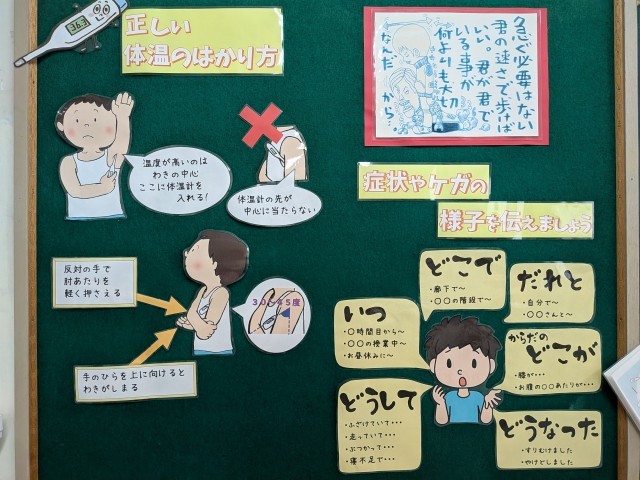 36.3
正しい
体温のはかり方
温度が高いのは
わきの中心
ここに体温計を
入れる!
体温計の先が
中心に当たらない
反対の手で
肘あたりを
軽く押さえる
30~45度
手のひらを上に向けると
わきがしまる
急ぐ必要はない
君の速さで歩けば
いい。君が君で
いる事が
何よりも大切
なんだから…
症状やケガの
様子を伝えましょう
どこで
・廊下で~
・〇〇の階段で~
だれと
・自分で~
・〇〇さんと~
いつ
・〇時間目から~
・〇〇の授業中~
・お昼休みに~
からだの
どこが
・膝が・・・
・お腹の〇〇あたりが…
どうして
・ふざけていて・・・
・走っていて・・・
・ぶつかって・・・
・寝不足で・・・
どうなった
・すりむけました
・やけどしました